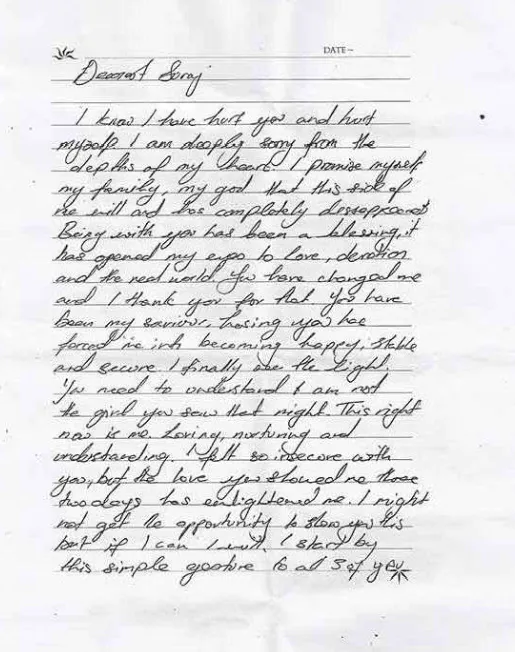 DATE –
Dearest Sooraj
I know I have hurt you and hurt
myself. I am deeply sorry from the
depths of my heart. I promise myself,
my family, my god that this side of
me will and has completely dissapeared
Being with you has been a blessing, it
has opened my eyes to love, devotion
and the real world. You have changed me
and I thank you for that. You have
been my saviour, losing you has
forced me into becoming happy, stable
and secure. I finally see the light.
You need to understand I am not
the girl you saw that night. This right
now is me. Loving, nurturing and
understanding. I felt so insecure with
you, but the love you showed me those
two days has enlightened me. I might
not get the opportunity to show you this
but if I can I will. I start by
this simple gesture to al 3 of you